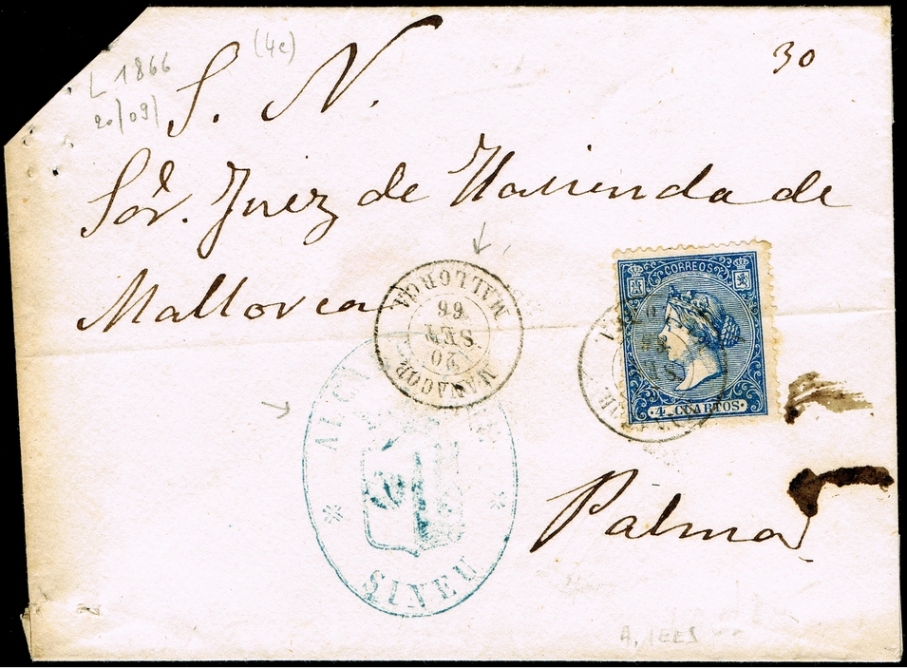 L 1866
(4c)
30
20/09/
S. N.
Sór. Juez de Hacienda de
Mallorca
MANACOR
20
SET
66
MALLORCA
CORREOS
4 CUARTOS
ALC
SINEU
Palma